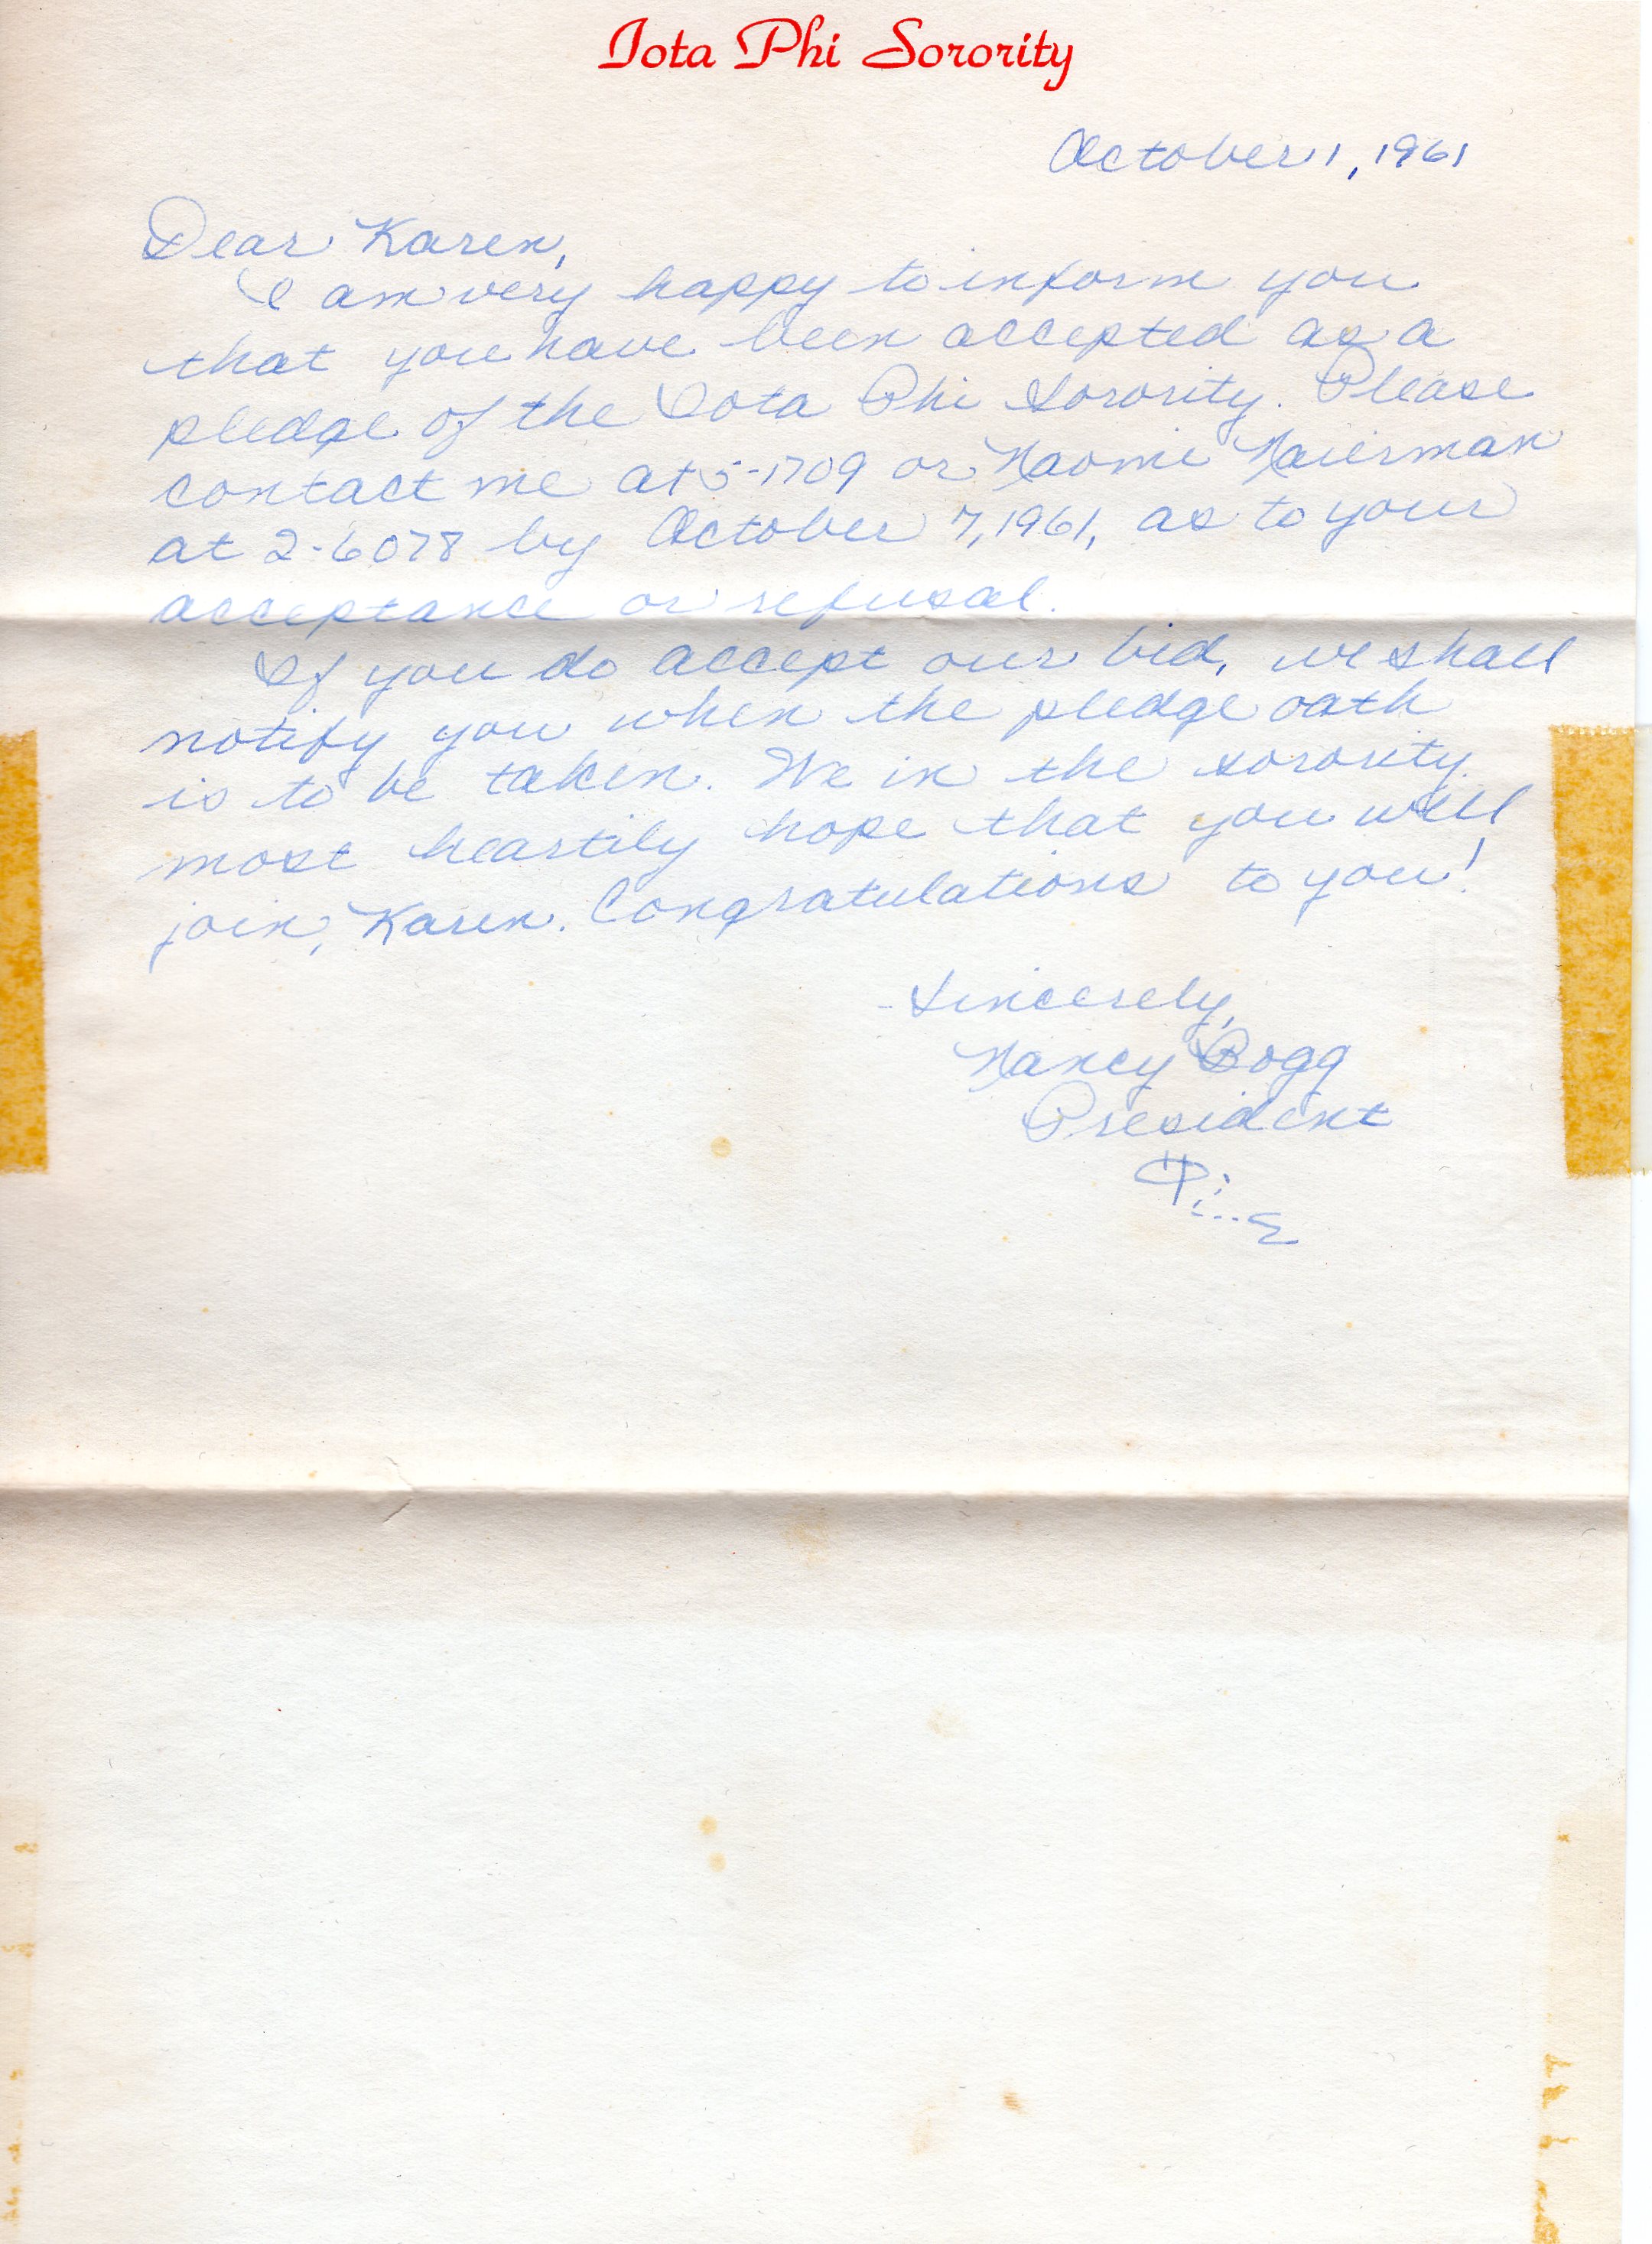 Iota Phi Sorority
October 1, 1961
Dear Karen,
I am very happy to inform you
that you have been accepted as a
pledge of the Iota Phi Sorority. Please
contact me at 5-1709 or Naomi Naierman
at 2-6078 by October 7, 1961, as to your
acceptance or refusal.
If you do accept our bid, we shall
notify you when the pledge oath
is to be taken. We in the sorority
most heartily hope that you will
join, Karen. Congratulations to you!
Sincerely,
Nancy Bogg
President